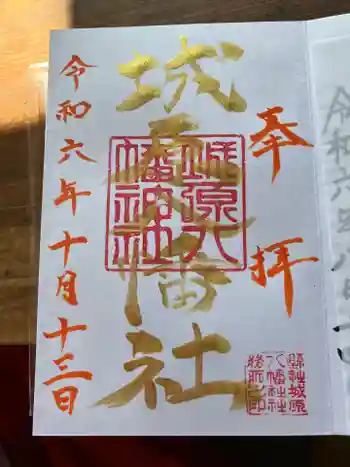 奉拝
城原八幡社
城原八幡神社
縣社城原
八幡社社
務所之印
令和六年十月十三日
令和六年八月